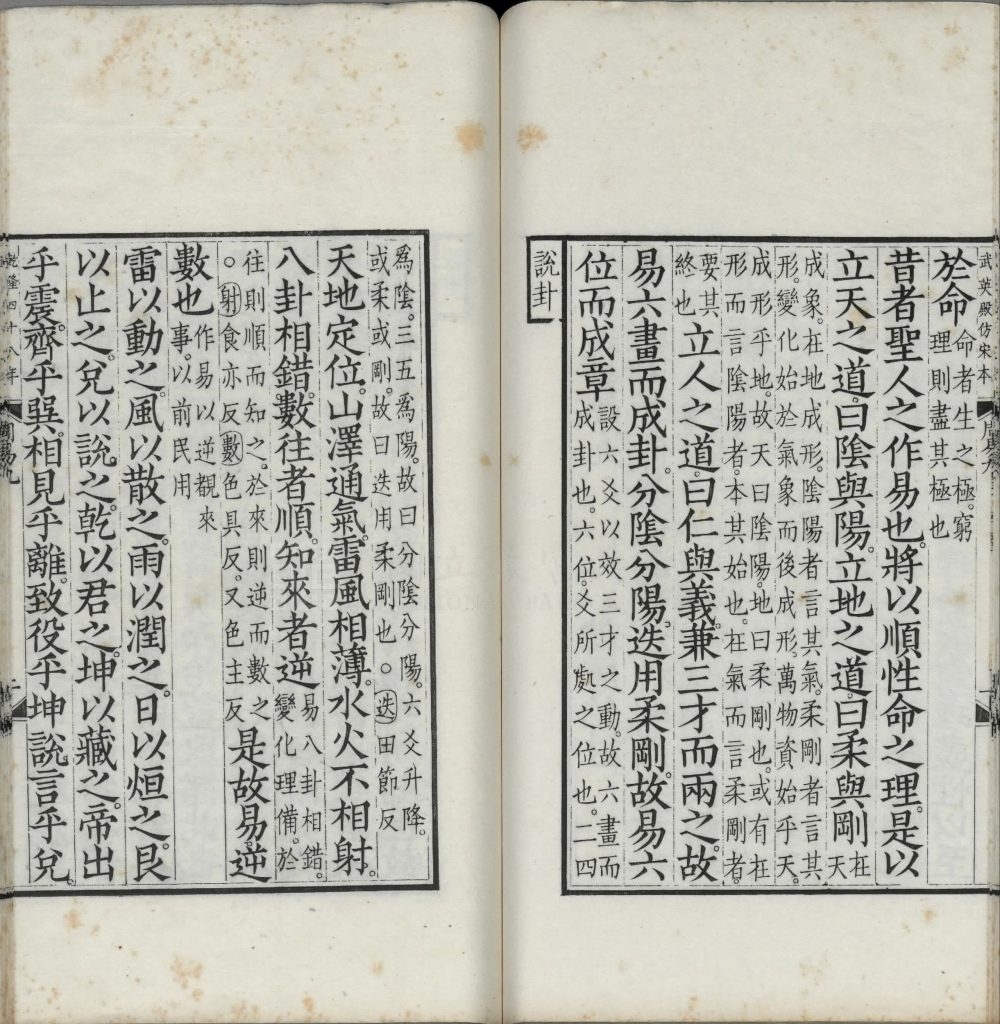 武英殿仿宋本
於命命者生之極。窮
理則盡其極也
昔者聖人之作易也。將以順性命之理。是以
立天之道。曰陰與陽。立地之道。曰柔與剛在
天
成象。在地成形。陰陽者言其氣。柔剛者言其
形。變化始於氣象而後成形。萬物資始乎天。
成形乎地。故天曰陰陽。地曰柔剛也。或有在
形而言陰陽者。本其始也。在氣而言柔剛者。
要其
終也立人之道。曰仁與義。兼三才而兩之。故
易六畫而成卦。分陰分陽。迭用柔剛。故易六
位而成章設六爻以效三才之動。故六畫而
成卦也。六位。爻所處之位也。二四
說卦
為陰。三五為陽。故曰分陰分陽。六爻升降。
或柔或剛。故曰迭用柔剛也○迭田節反
天地定位。山澤通氣。雷風相薄。水火不相射。
八卦相錯。數往者順。知來者逆易八卦相錯。
變化理備。於
往則順而知之。於來則逆而數之
○射食亦反數色具反。又色主反是故易。逆
數也作易以逆覩來
事。以前民用
雷以動之。風以散之。雨以潤之。日以烜之。艮
以止之。兌以說之。乾以君之。坤以藏之。帝出
乎震。齊乎巽。相見乎離。致役乎坤。說言乎兌
乾隆四十八年
周易九
一